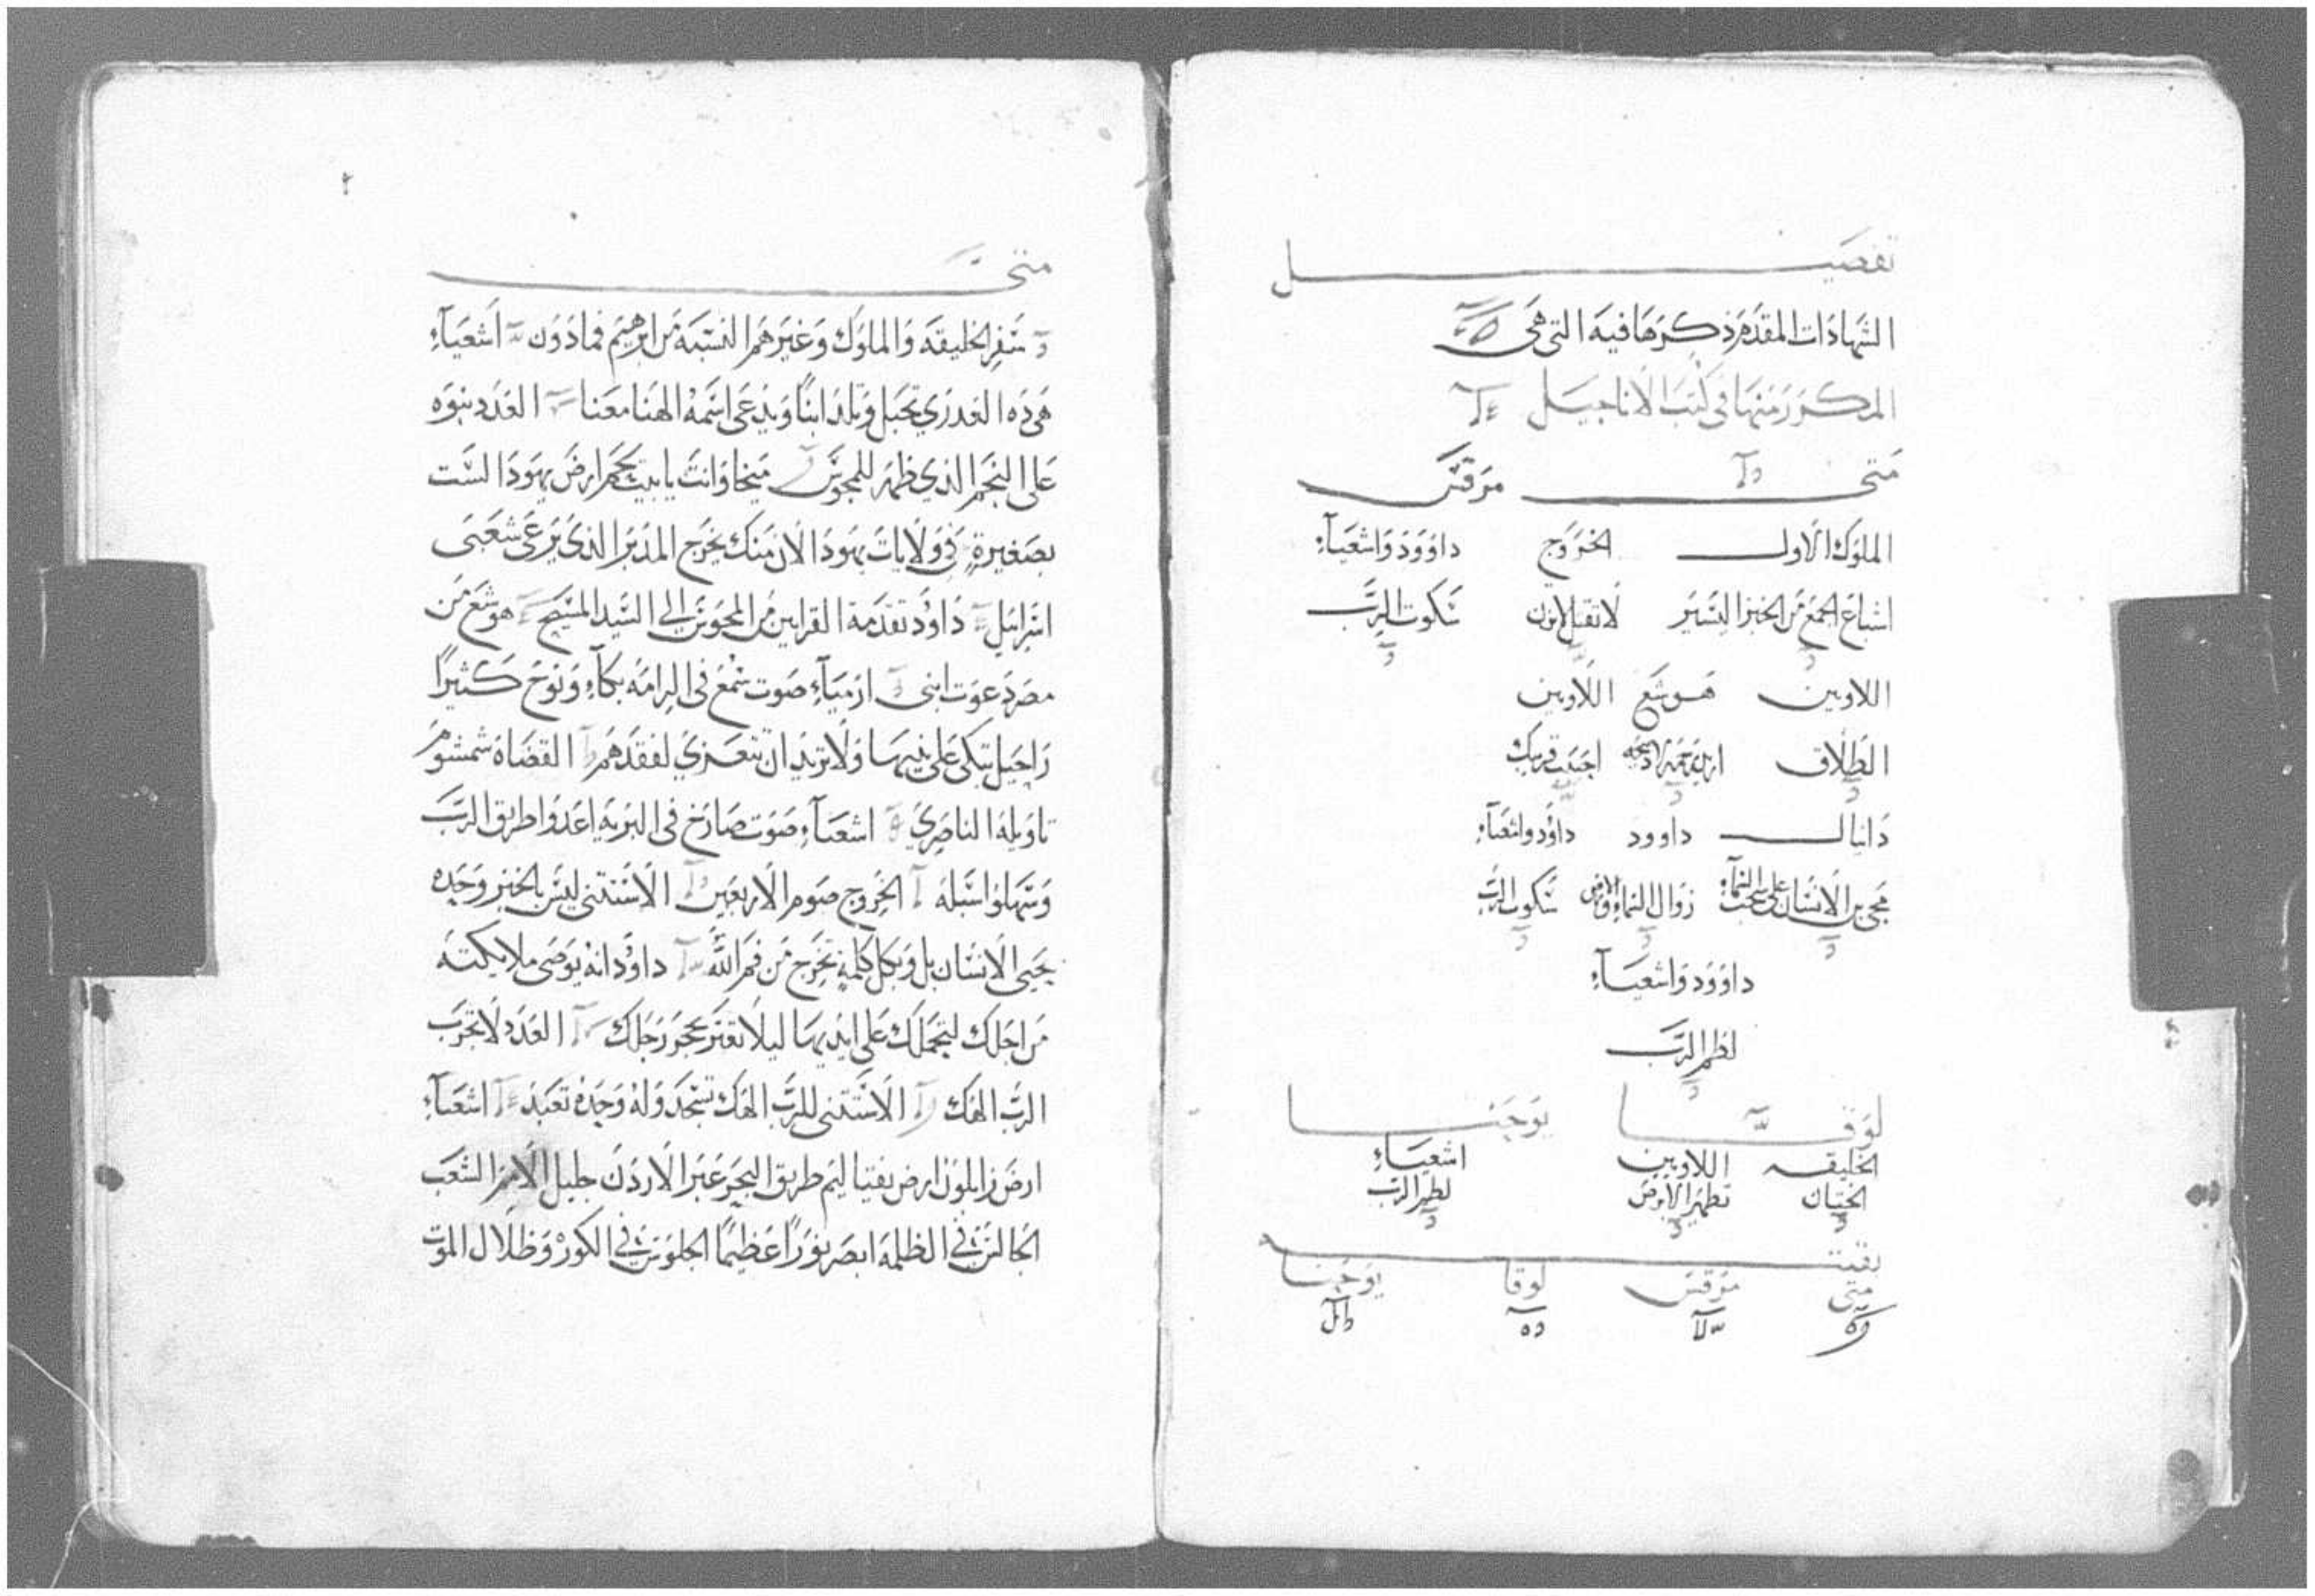 تفصيل
الشهادات المقدم ذكرها فيه التي هي
المكرر منها في كتب الاناجيل
متى مرقس
الملوك الاول الخروج داوود واشعياء
اشباع الجمع من الخبز اليسير لا تقتل لا تزن سكوت الرب
اللاويين هوشع اللاويين
الطلاق اريد رحمة لا ذبيحه احبب قريبك
دانيال داوود داوود واشعياء
مجي بن الانسان على سحب السماء زوال السماء والارض سكوت الرب
داوود واشعياء
لظم الرب
لوقا يوحنا
الخليقه اللاويين اشعياء
الختان تطهير الابرص لطم الرب
بقيته
متى مرقس لوقا يوحنا
٢
متى
سفر الخليقه والملوك وغيرهم النسبه من ابرهيم فما دون اشعياء
هي ده العدري تحبل وتلد ابنا ويدعى اسمه الهنا معنا العدد نبوه
على النجم الذي ظهر للمجوس ميخا وانت يا بيت لحم ارض يهودا لست
بصغيرة في ولايات يهودا لان منك يخرج المدبر الذي يرعى شعبي
اسرائيل داود تقدمة القرابين من المجوس الى السيد المسيح هوشع من
مصر دعوت ابني ارمياء صوت سمع في الرامه بكاء ونوح كثيرا
راحيل تبكي على بنيها ولا تريد ان تتعزي لفقدهم القضاة شمشوم
تاويله الناصري اشعياء صوت صارخ في البريه اعدوا طريق الرب
وسهلوا سبله الخروج صوم الاربعين الاستثنى ليس بالخبز وحده
يحيى الانسان بل وبكل كلمة تخرج من فم الله داود انه يوصى ملايكته
من اجلك لتحملك على ايديها ليلا تعتر بحجر رجلك العدد لا تجرب
الرب الهك الاستثنى للرب الهك تسجد وله وحده تعبد اشعياء
ارض زابلون ارض نفتاليم طريق البحر عبر الاردن جليل الامم الشعب
الجالس في الظلمه ابصر نورا عظيما الجلوس في الكور وظلال الموت